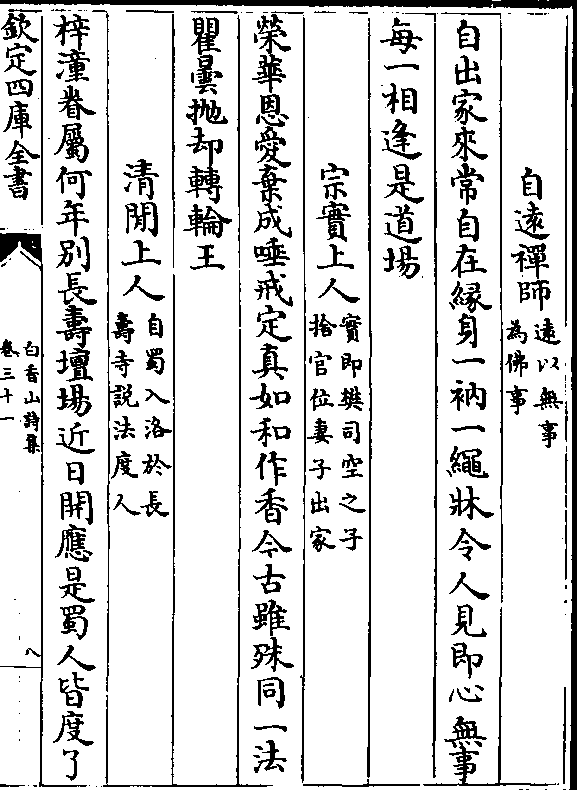 自遠禪師遠以無事為佛事
自出家來常自在緣身一衲一繩牀令人見即心無事
每一相逢是道場
宗實上人實即樊司空之子捨官位妻子出家
榮華恩愛棄成唾戒定真如和作香今古雖殊同一法
瞿曇抛却轉輪王
清閒上人自蜀入洛於長壽寺説法度人
梓潼眷屬何年別長壽壇場近日開應是蜀人皆度了
欽定四庫全書
白香山詩集
卷三十一
八